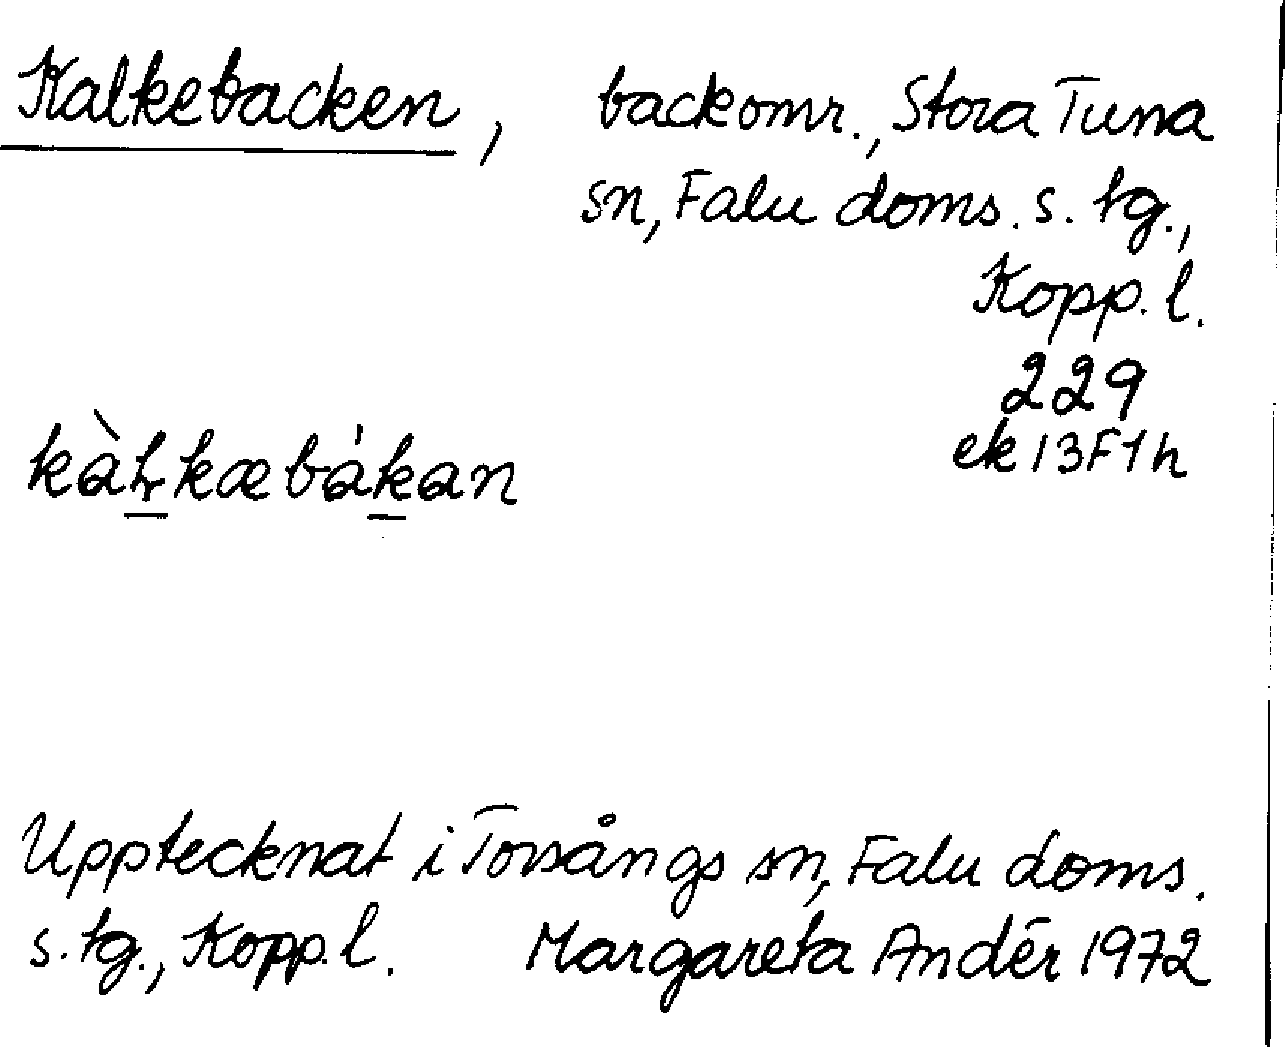 Kalkebacken, backomr., Stora Tuna
sn, Falu doms. s. tg.,
Kopp. l.
229
ek 13F1h
kàłkæbákan
Upptecknat i Torsångs sn, Falu doms.
s. tg., Kopp. l. Margareta Andér 1972